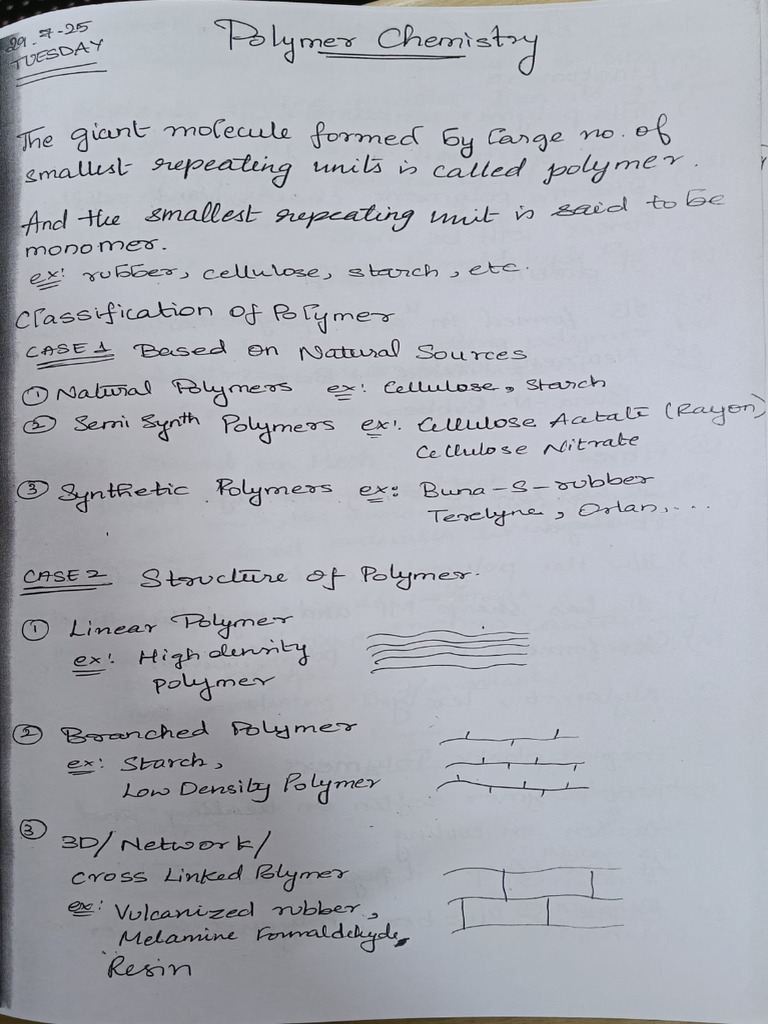 29-7-25
TUESDAY
Polymer Chemistry
The giant molecule formed by large no. of
smallest repeating units is called polymer.
And the smallest repeating unit is said to be
monomer.
ex: rubber, cellulose, starch, etc.
Classification of Polymer
CASE 1 Based on Natural Sources
① Natural Polymers ex: Cellulose, Starch
② Semi Synth Polymers ex: Cellulose Acetate (Rayon)
Cellulose Nitrate
③ Synthetic Polymers ex: Buna-S-rubber
Terelyne, Orlan,...
CASE 2 Structure of Polymer.
① Linear Polymer
ex: High density
polymer
② Branched Polymer
ex: Starch,
Low Density Polymer
③ 3D/Network/
Cross Linked Polymer
ex: Vulcanized rubber,
Melamine Formaldehyde
Resin